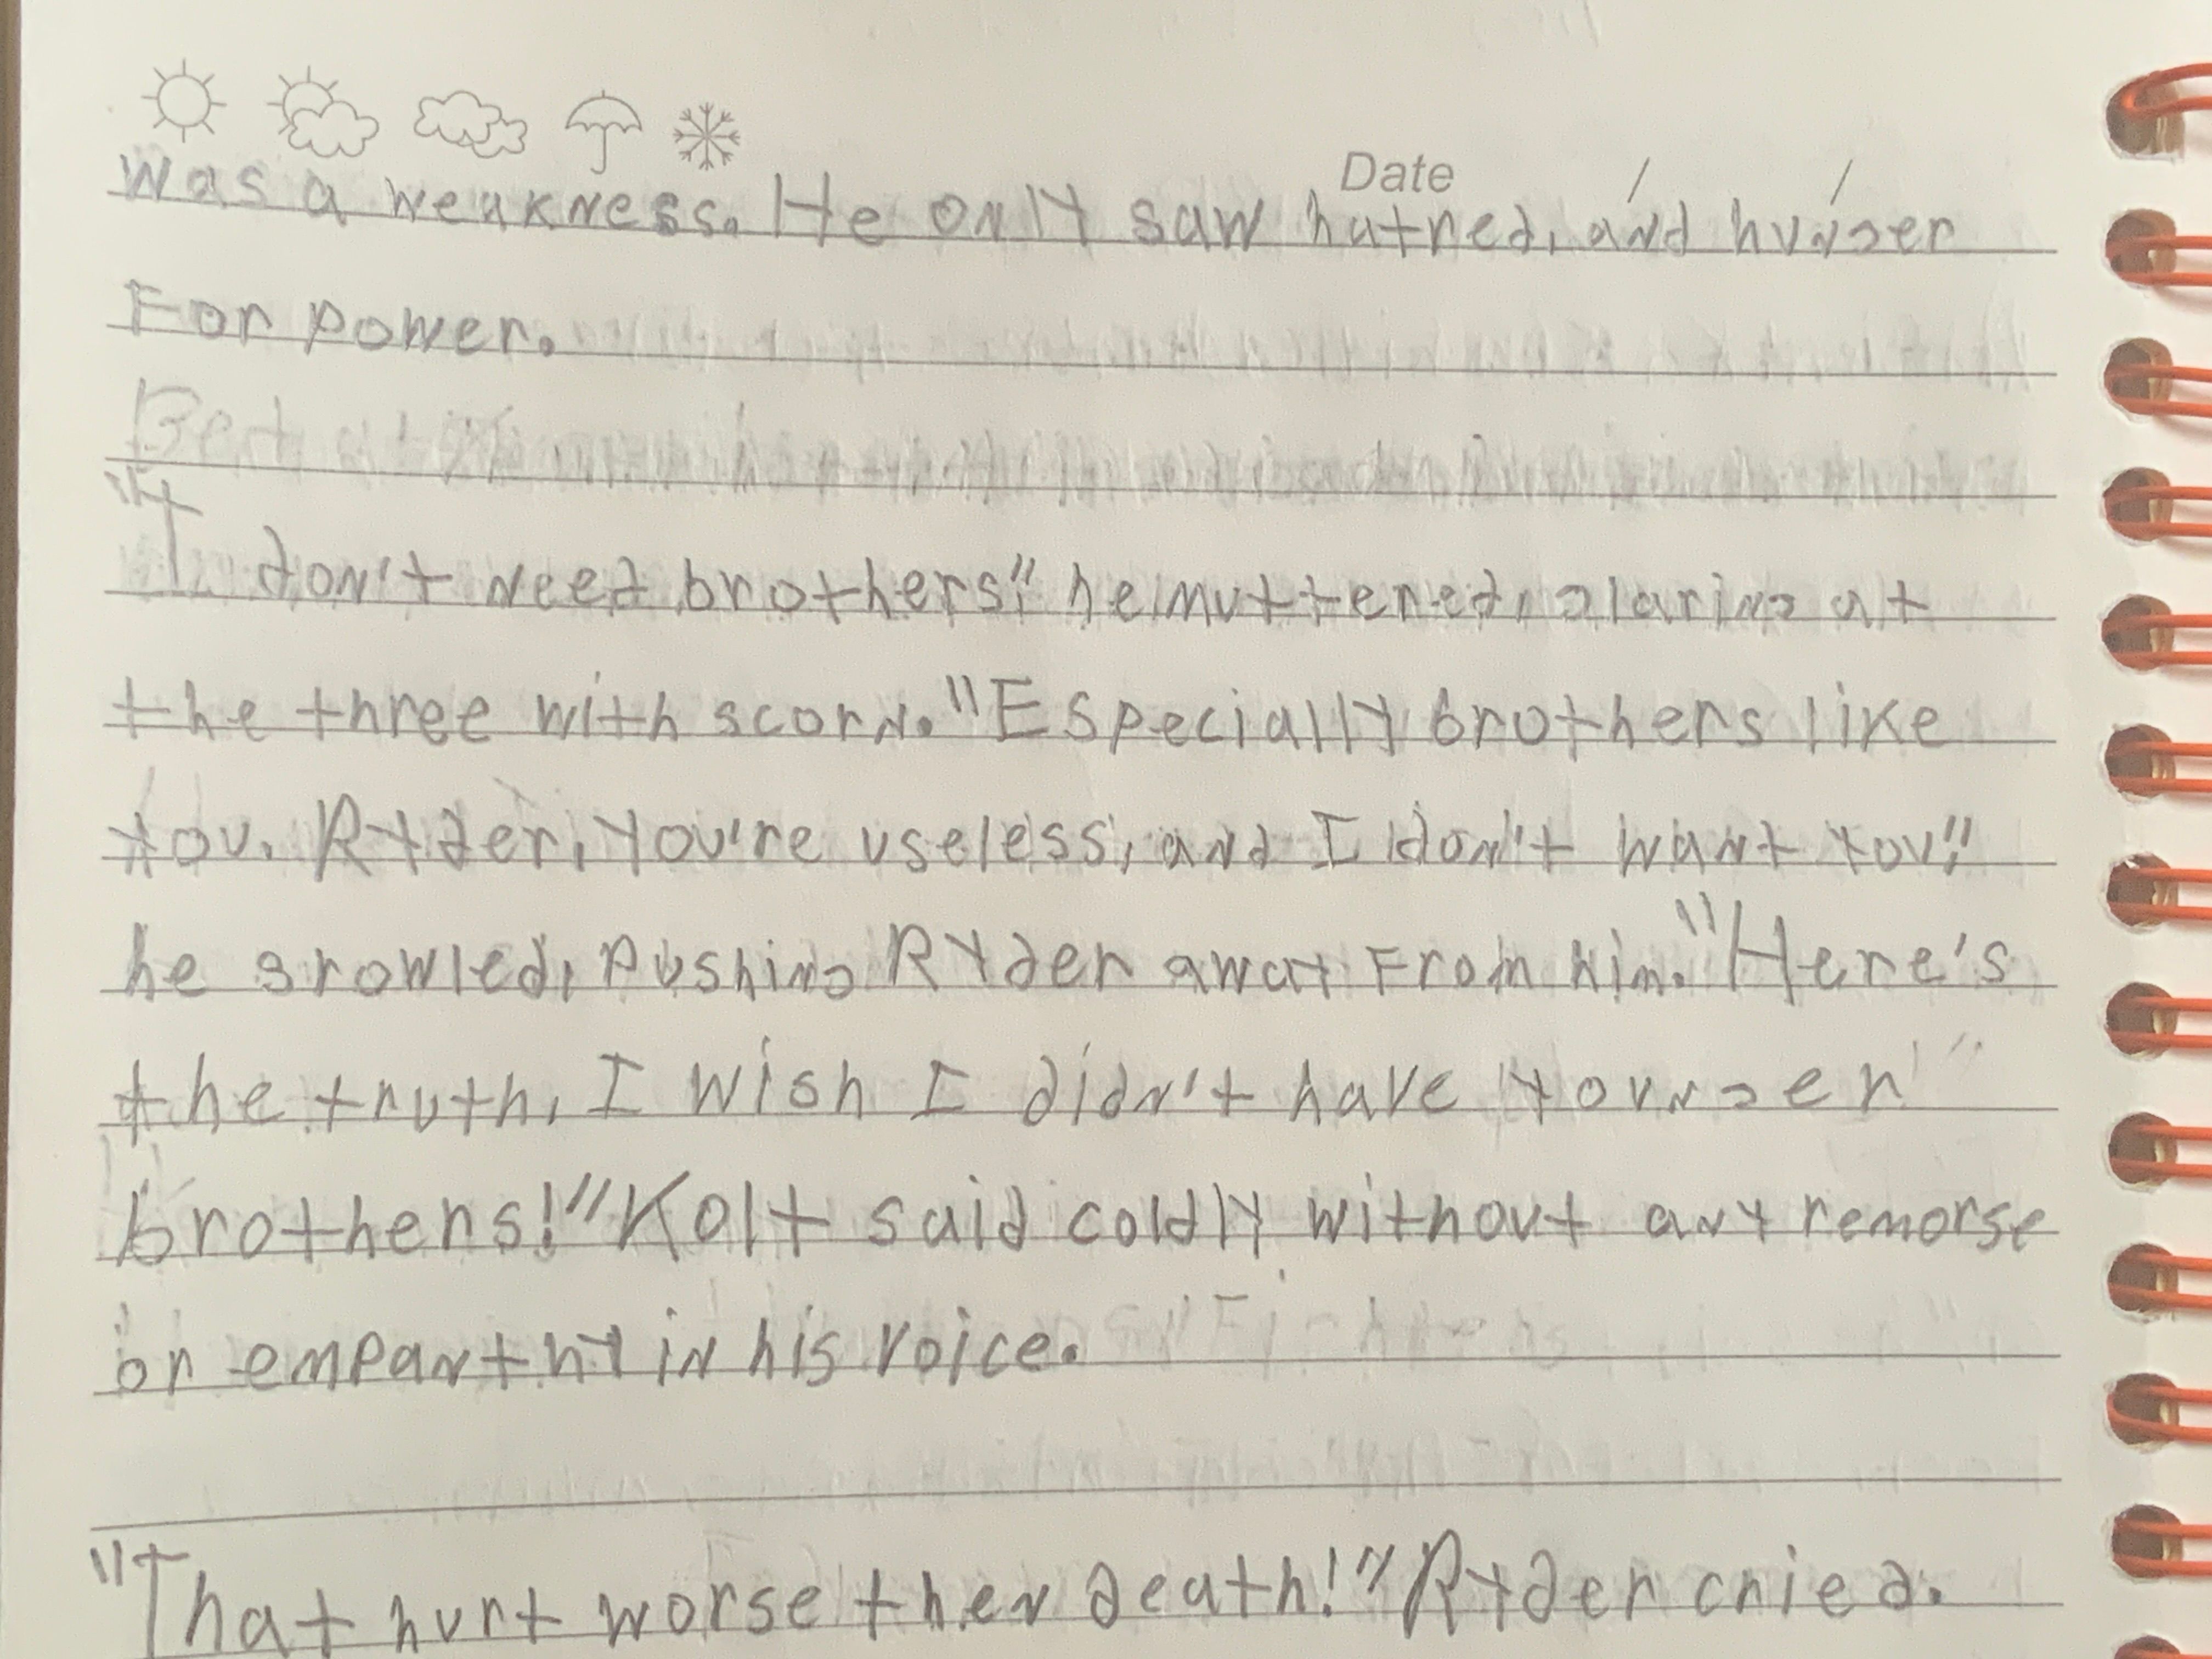 Date / /
was a weakness. He only saw hatred, and hunger
For power.
"I don't need brothers," he muttered, glaring at
the three with scorn. "Especially brothers like
you. Ryder, you're useless, and I don't want you!"
he growled, pushing Ryder away From him. "Here's
the truth, I wish I didn't have younger
brothers!" Kolt said coldly without any remorse
or empanthy in his voice.
"That hurt worse then death!" Ryder cried.